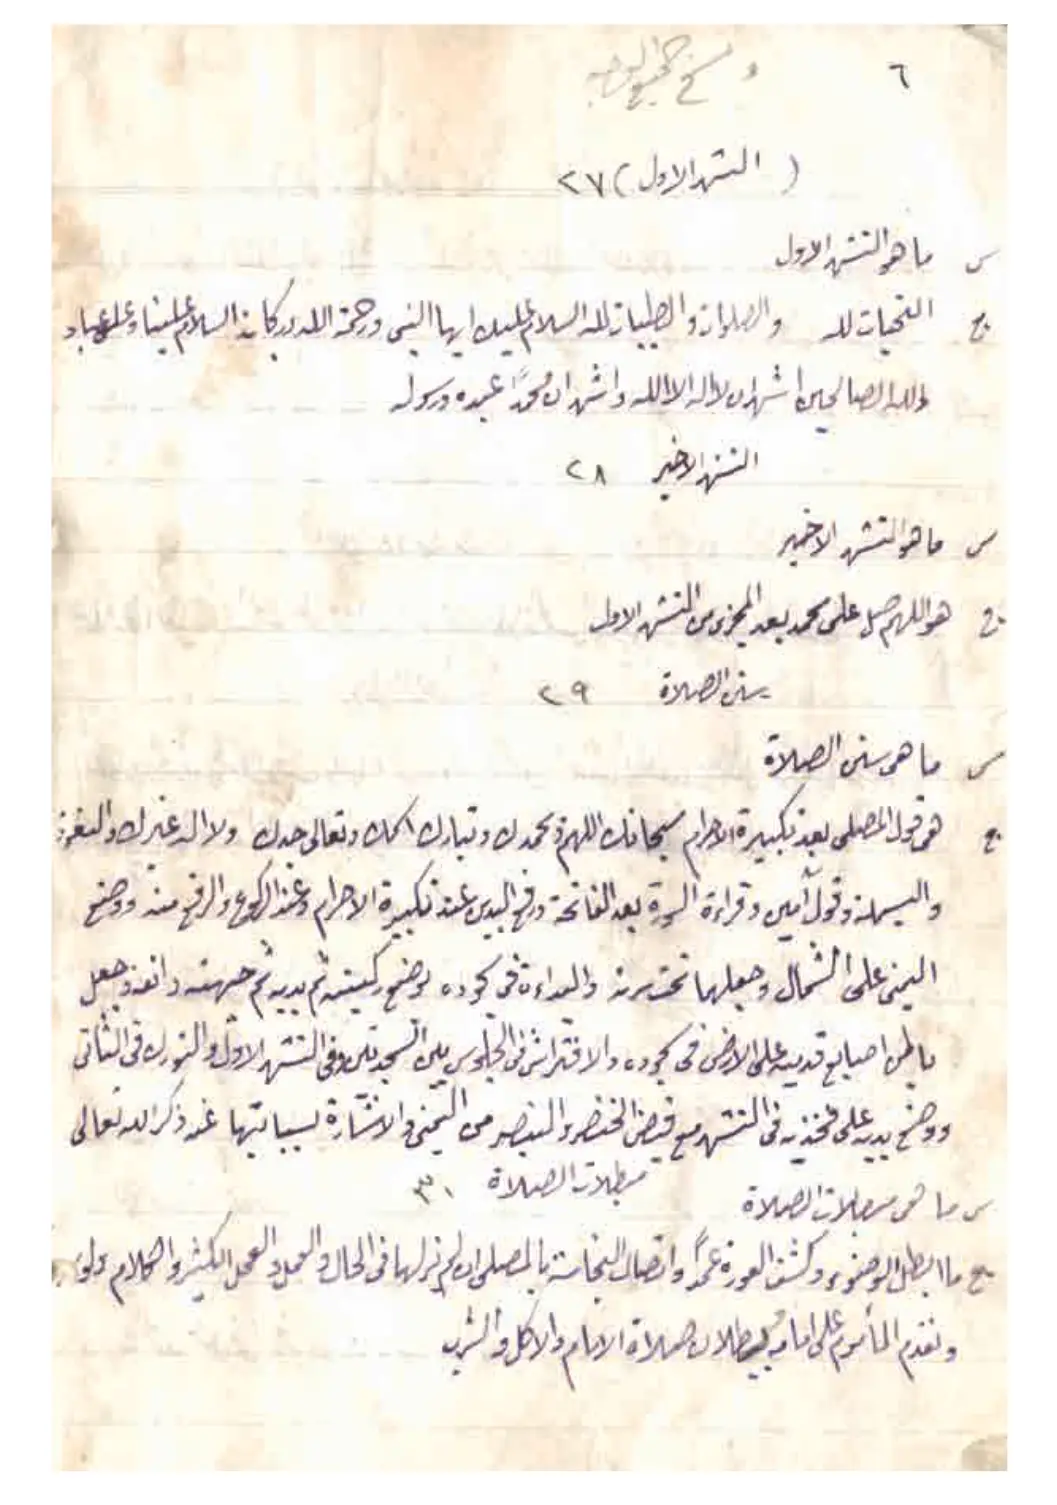 ٦
(التشهد الاول) ٢٧
س ما هو التشهد الاول
ج التحيات لله والصلوات والطيبات لله السلام عليك ايها النبي ورحمة الله وبركاته السلام علينا وعلى عباد
الله الصالحين اشهد ان لا اله الا الله واشهد ان محمدًا عبده ورسوله
التشهد الاخير ٢٨
س ما هو التشهد الاخير
ج هو اللهم صل على محمد بعد المجزى من التشهد الاول
سنن الصلاة ٢٩
س ما هى سنن الصلاة
ج هى قول المصلى بعد تكبيرة الاحرام سبحانك اللهم وبحمدك وتبارك اسمك وتعالى جدك ولا اله غيرك والتعوذ
والبسملة وقول آمين وقراءة السورة بعد الفاتحة ورفع اليدين عند تكبيرة الاحرام وعند الركوع والرفع منه ووضع
اليمنى على الشمال وجعلهما تحت سرته والبداءة فى سجوده بوضع ركبتيه ثم يديه ثم جبهته وانفه وجعل
باطن اصابع قدميه على الارض فى سجوده والافتراش فى الجلوس بين السجدتين وفى التشهد الاول والتورك فى الثانى
ووضع يديه على فخذيه فى التشهد مع قبض الخنصر والبنصر من اليمنى والاشارة بسبابتها عند ذكر الله تعالى
مبطلات الصلاة ٣٠
س ما هى مبطلات الصلاة
ج ما ابطل الوضوء وكشف العورة عمدًا واتصال النجاسة بالمصلى ان لم يزلها فى الحال والعمل الكثير والكلام ولو
وتقدم المأموم على امامه وبطلان صلاة الامام والاكل والشرب